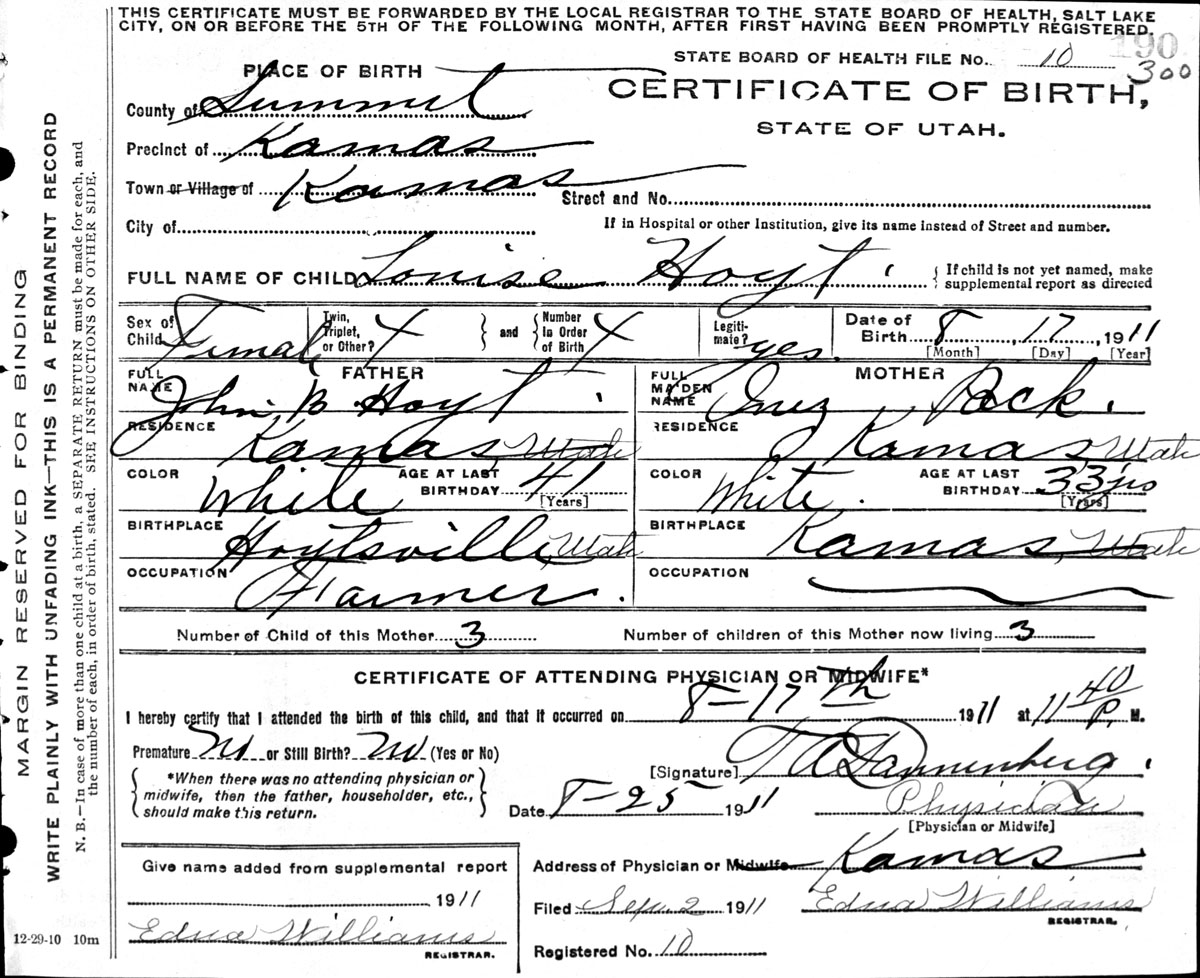 THIS CERTIFICATE MUST BE FORWARDED BY THE LOCAL REGISTRAR TO THE STATE BOARD OF HEALTH, SALT LAKE
CITY, ON OR BEFORE THE 5TH OF THE FOLLOWING MONTH, AFTER FIRST HAVING BEEN PROMPTLY REGISTERED.
190
STATE BOARD OF HEALTH FILE No. 10
300
PLACE OF BIRTH
CERTIFICATE OF BIRTH,
STATE OF UTAH.
County of Summit
Precinct of Kamas
Town or Village of Kamas
Street and No.
City of
If in Hospital or other Institution, give its name instead of Street and number.
FULL NAME OF CHILD Louise Hoyt
If child is not yet named, make
supplemental report as directed
Sex of Child Femal
Twin, Triplet, or Other? X
and
Number In Order of Birth X
Legiti-mate? yes.
Date of Birth 8, 17, 1911
[Month] [Day] [Year]
FATHER
FULL NAME John B. Hoyt
RESIDENCE Kamas, Utah
COLOR White
AGE AT LAST BIRTHDAY 41
[Years]
BIRTHPLACE Hoytsville, Utah
OCCUPATION Farmer.
MOTHER
FULL MAIDEN NAME Inez Pack.
RESIDENCE Kamas, Utah
COLOR White.
AGE AT LAST BIRTHDAY 33 yrs
[Years]
BIRTHPLACE Kamas, Utah
OCCUPATION
Number of Child of this Mother 3
Number of children of this Mother now living 3
CERTIFICATE OF ATTENDING PHYSICIAN OR MIDWIFE*
I hereby certify that I attended the birth of this child, and that it occurred on 8-17th 1911 at 11 40 P. M.
Premature No or Still Birth? No (Yes or No)
*When there was no attending physician or
midwife, then the father, householder, etc.,
should make this return.
[Signature] T A Dannenberg.
Date 8-25 1911
Physician
[Physician or Midwife]
Address of Physician or Midwife Kamas
Give name added from supplemental report
1911
Edna Williams
REGISTRAR.
Filed Sep. 2 1911
Edna Williams
REGISTRAR.
Registered No. 10
12-29-10 10m
MARGIN RESERVED FOR BINDING
WRITE PLAINLY WITH UNFADING INK—THIS IS A PERMANENT RECORD
N. B.—In case of more than one child at a birth, a SEPARATE RETURN must be made for each, and
the number of each, in order of birth, stated. SEE INSTRUCTIONS ON OTHER SIDE.